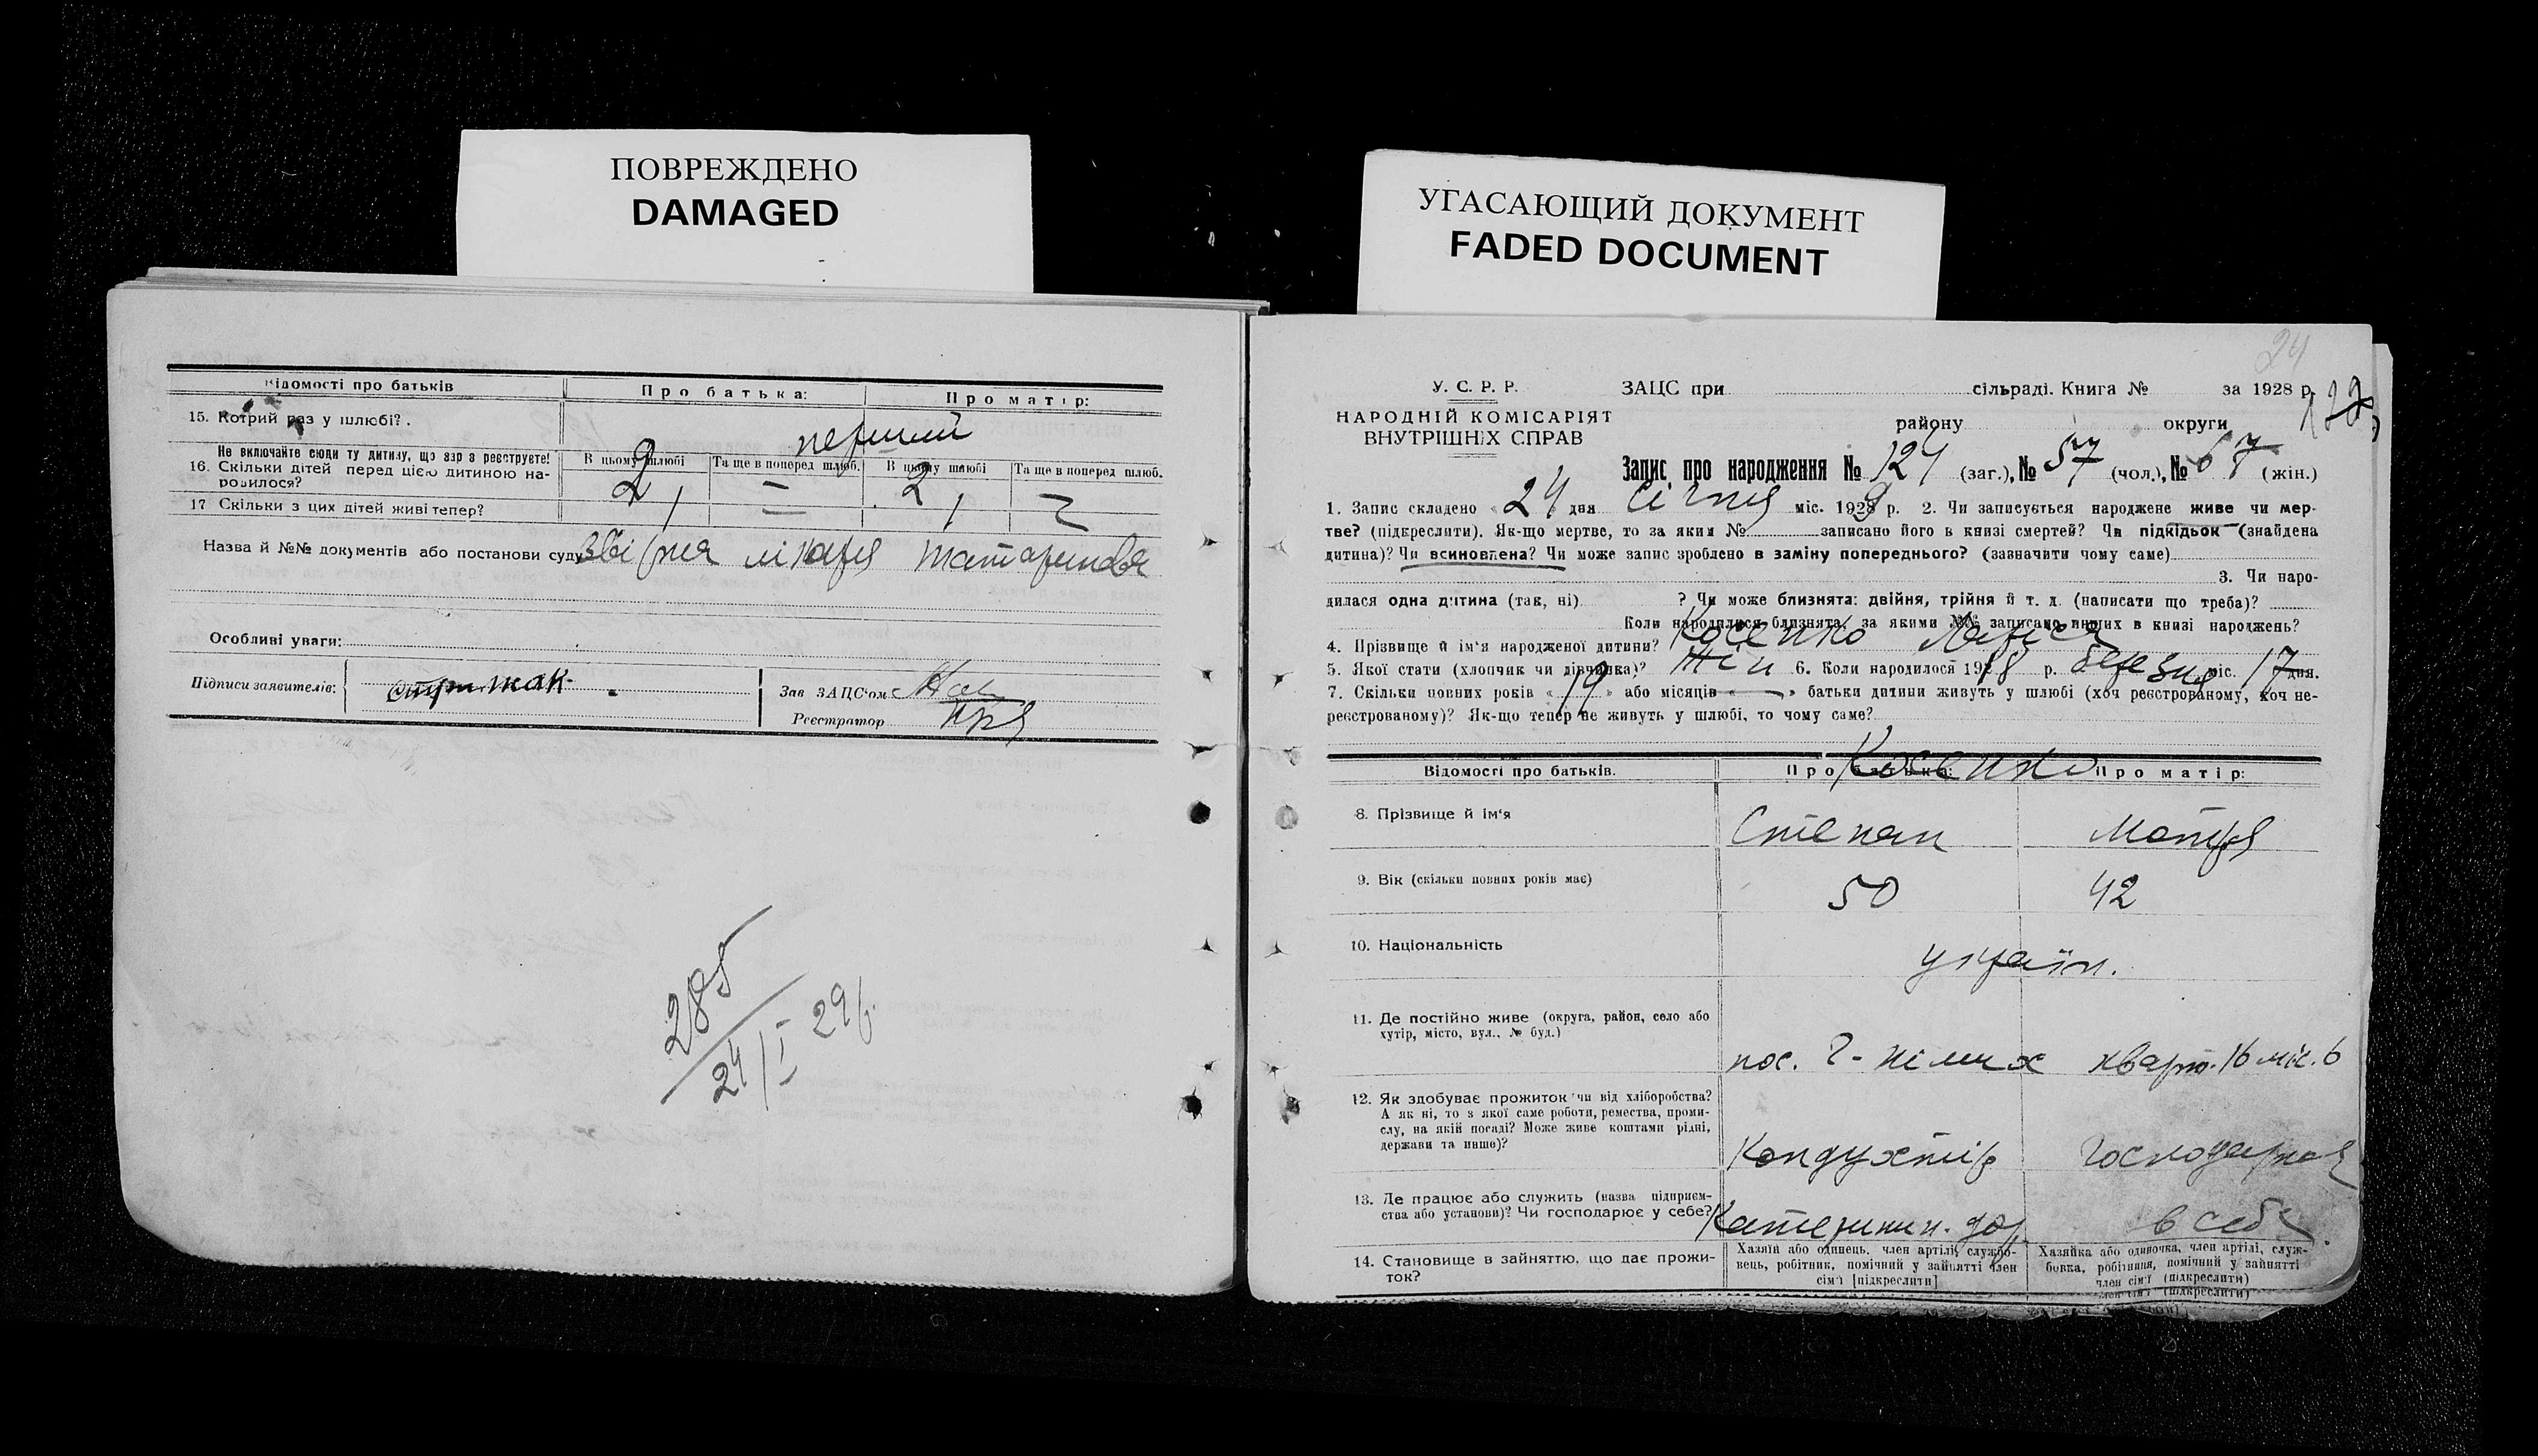 ПОВРЕЖДЕНО
DAMAGED
УГАСАЮЩИЙ ДОКУМЕНТ
FADED DOCUMENT
Відомості про батьків
Про батька:
Про матір:
15. Котрий раз у шлюбі?
перший
Не включайте сюди ту дитину, що зараз реєструєте!
16. Скільки дітей перед цією дитиною на-
родилося?
В цьому шлюбі
Та ще в поперед шлюб.
В цьому шлюбі
Та ще в поперед шлюб.
2
2
17 Скільки з цих дітей живі тепер?
1
1
Назва й №№ документів або постанови суду лікаря
Особливі уваги:
Підписи заявителів:
Зав ЗАЦС'ом
Реєстратор
285
24/I 29 р.
24
У. С. Р. Р.
НАРОДНІЙ КОМІСАРІЯТ
ВНУТРІШНІХ СПРАВ
ЗАЦС при сільраді. Книга № за 1928 р.
району округи
Запис про народження № 124 (заг.), № 57 (чол.), № 67 (жін.)
1. Запис складено « 24 дня Січня міс. 1929 р. 2. Чи записується народжене живе чи мер-
тве? (підкреслити). Як-що мертве, то за яким № записано його в книзі смертей? Чи підкідьок (знайдена
дитина)? Чи всиновлена? Чи може запис зроблено в заміну попереднього? (зазначити чому саме)
3. Чи наро-
дилася одна дитина (так, ні) ? Чи може близнята: двійня, трійня й т. д. (написати що треба)?
Коли народилися близнята, за якими №№ записано инших в книзі народжень?
4. Прізвище й ім'я народженої дитини? Косенко Лариса
5. Якої стати (хлопчик чи дівчинка)? жін 6. Коли народилося 1918 р. березня міс. 17 дня.
7. Скільки повних років « 19 » або місяців « — » батьки дитини живуть у шлюбі (хоч реєстрованому, хоч не-
реєстрованому)? Як-що тепер не живуть у шлюбі, то чому саме?
Відомості про батьків.
Про батька:
Про матір:
Косенко
8. Прізвище й ім'я
Степан
Мотря
9. Вік (скільки повних років має)
50
42
10. Національність
україн.
11. Де постійно живе (округа, район, село або
хутір, місто, вул., № буд.)
пос. кварт. 16 міс. 6
12. Як здобуває прожиток чи від хліборобства?
А як ні, то з якої саме роботи, ремества, проми-
слу, на якій посаді? Може живе коштами рідні,
держави та инше)?
Кондухтір
Господарка
13. Де працює або служить (назва підприєм-
ства або установи)? Чи господарює у себе?
Катеринин. дор.
в себе
14. Становище в зайняттю, що дає прожи-
ток?
Хазяїн або одинець, член артілі, службо-
вець, робітник, помічний у зайнятті член
сім'ї [підкреслити]
Хазяйка або одиночка, член артілі, служ-
бовка, робітниця, помічний у зайнятті
член сім'ї (підкреслити)